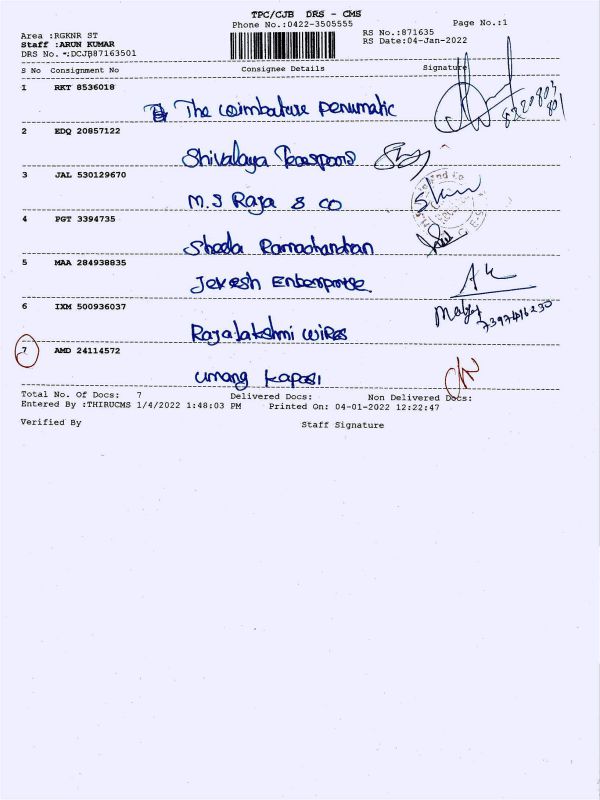 TPC/CJB DRS - CMS
Phone No.:0422-3505555
Page No.:1
Area :RGKNR ST
RS No.:871635
Staff :ARUN KUMAR
RS Date:04-Jan-2022
DRS No. :DCJB87163501
S No Consignment No Consignee Details Signature
1 RKT 8536018
The coimbature penumatic
2 EDQ 20857122
Shivalaya
3 JAL 530129670
M.S Raja & co
4 PGT 3394735
Sheela Ramachandran
5 MAA 284938835
Jekesh Enterprise
6 IXM 500936037
Rajalakshmi wires
7 AMD 24114572
umang kapasi
Total No. Of Docs: 7 Delivered Docs: Non Delivered Docs:
Entered By :THIRUCMS 1/4/2022 1:48:03 PM Printed On: 04-01-2022 12:22:47
Verified By Staff Signature